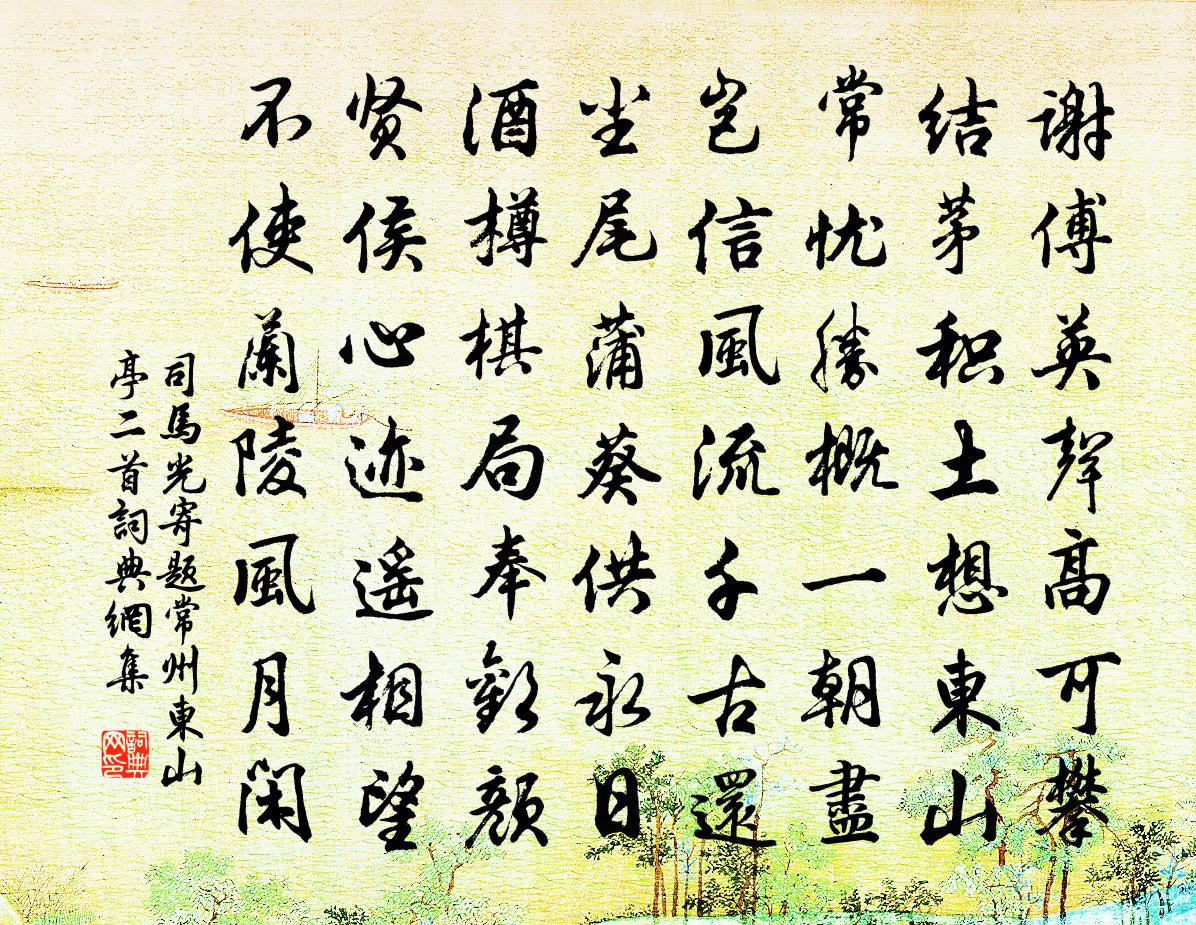 謝傅英聲高可攀
结茅积土想東山
常忧勝概一朝盡
岂信風流千古還
坐尾蒲葵供永日
酒樽棋局奉歡顔
贤侯心迹遥相望
不使蘭陵風月闲
司馬光寄题常州東山
亭二首詞典網集
詞典网印